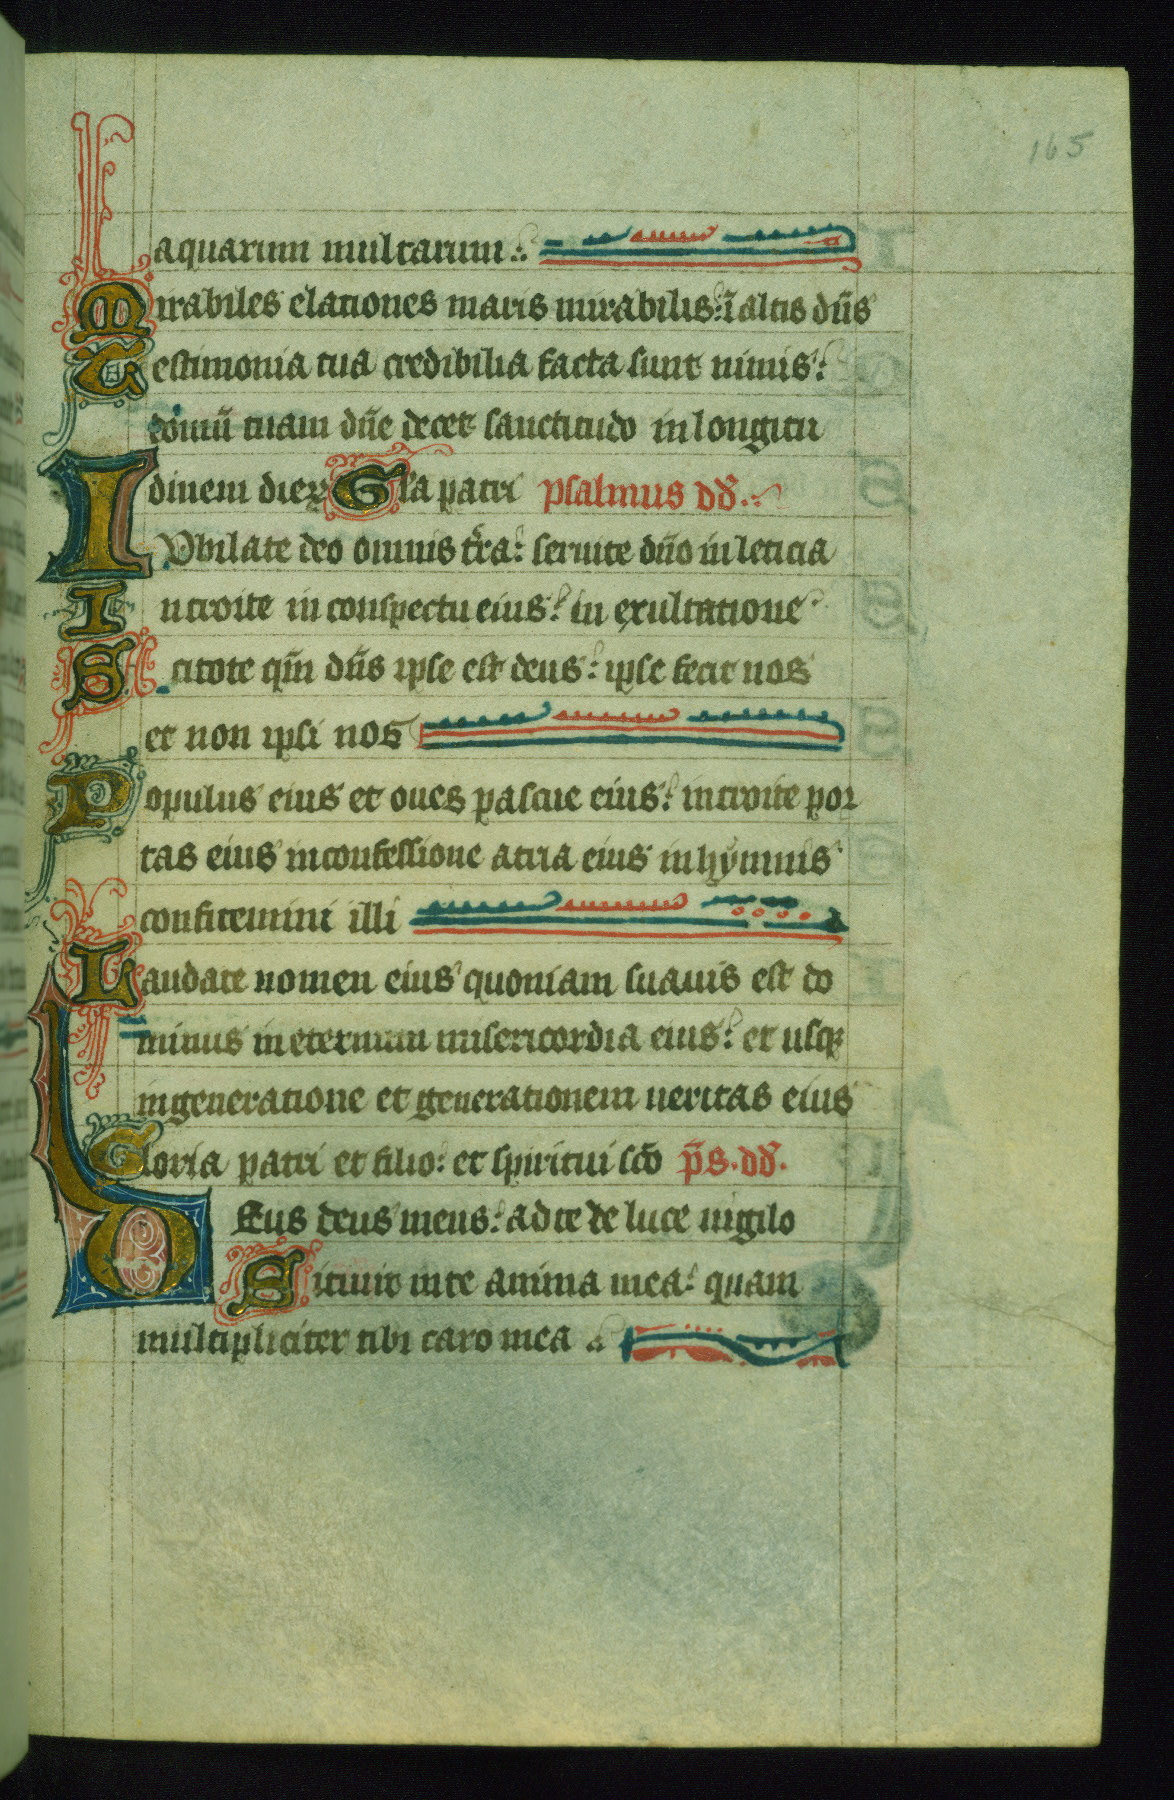 165
aquarum multarum.
Mirabiles elationes maris mirabilis: ī altis dn̄s
Testimonia tua credibilia facta sunt nimis:
domū tuam dn̄e decet sanctitudo in longitu
dinem dieꝝ Gl'a patri psalmus dd.
IVbilate deo omnis t̄ra: seruite dn̄o in leticia
Introite in conspectu eius: in exultatione
Scitote qm̄ dn̄s ipse est deus: ipse fecit nos
et non ipsi nos
Populus eius et oues pascue eius: introite por
tas eius in confessione atria eius in hymnis
confitemini illi
Laudate nomen eius quoniam suauis est do
minus in eternum misericordia eius: et usqꝫ
in generatione et generationem ueritas eius
Gloria patri et filio: et spiritui sc̄o p̄s. dd.
DEus deus meus: ad te de luce uigilo
Sitiuit in te anima mea: quam
multipliciter tibi caro mea